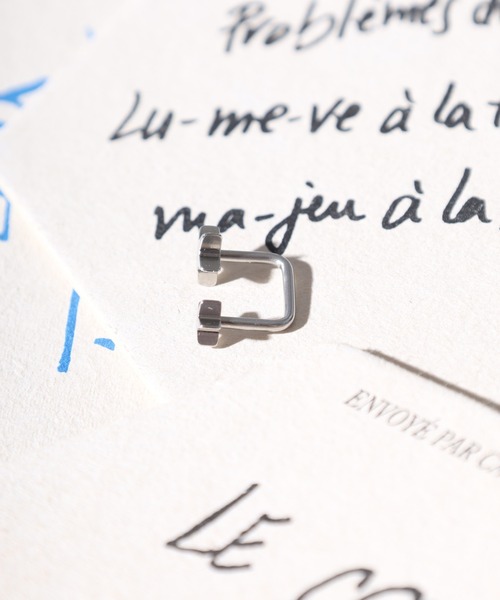 Problèmes d
Lu-me-ve à la
ma-jeu à la
ENVOYÉ PAR
LE